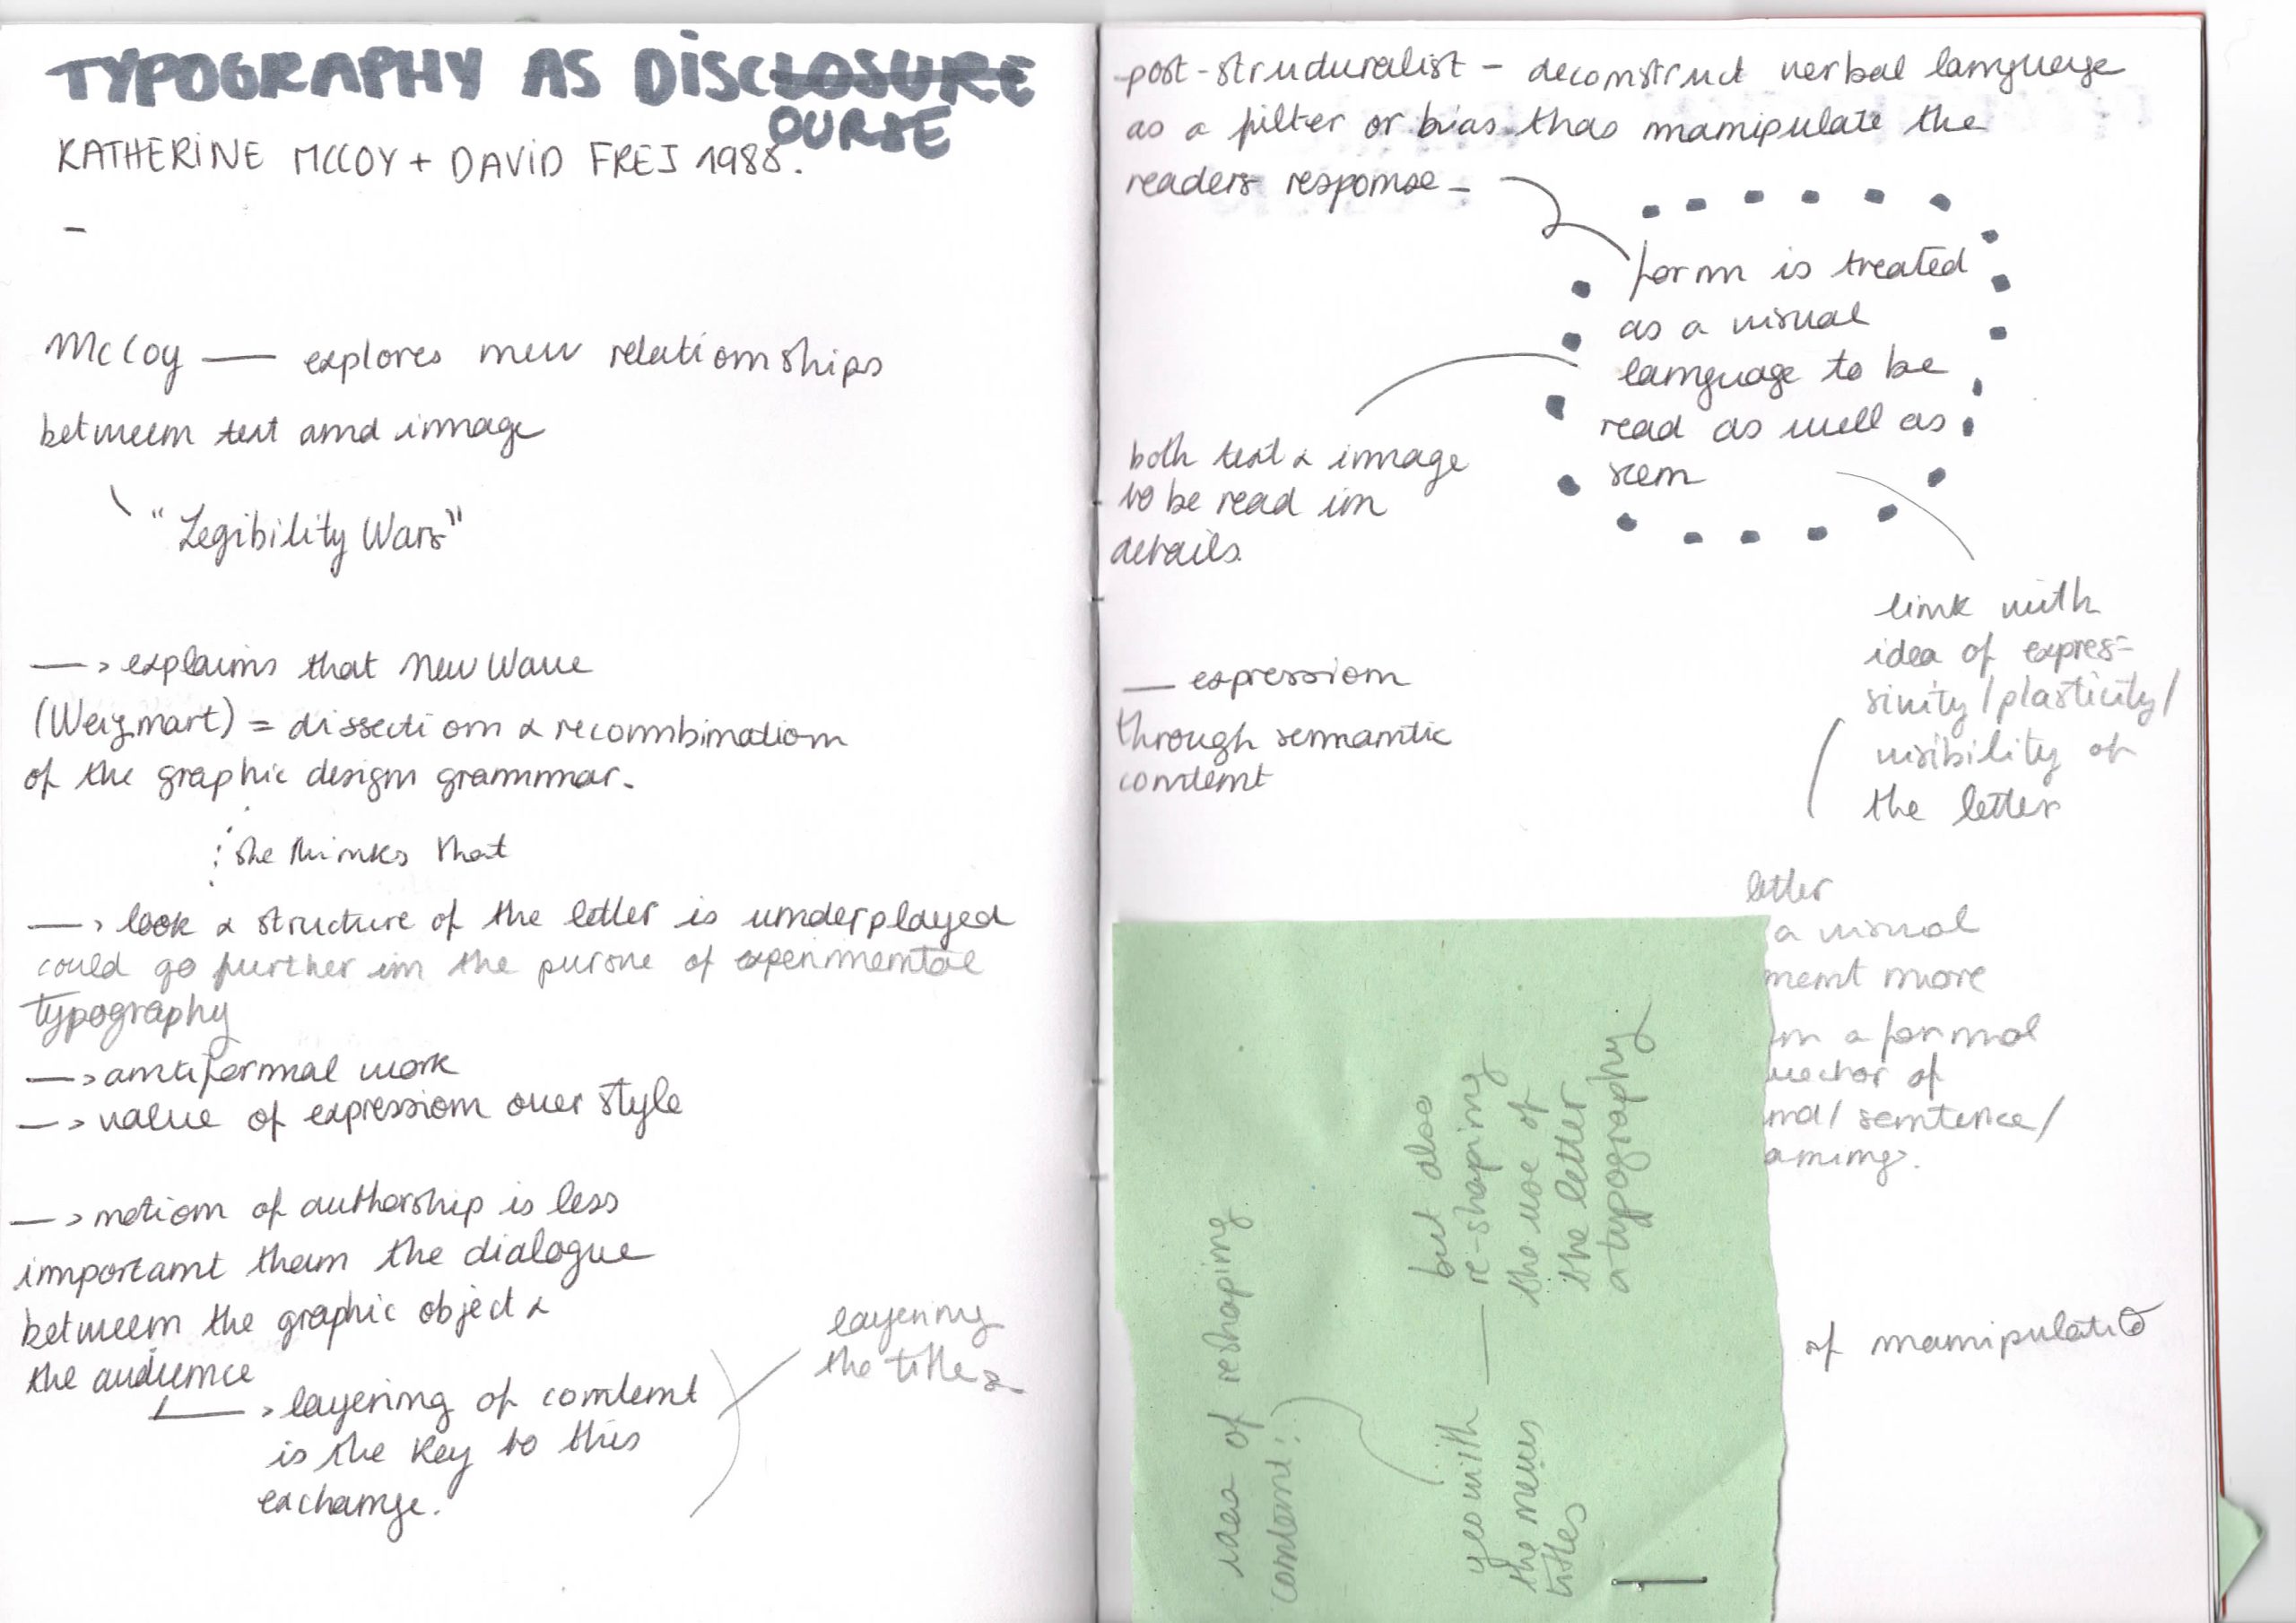 TYPOGRAPHY AS DISCLOSURE
OURSE
KATHERINE MCCOY + DAVID FREJ 1988.
–
McCoy — explores new relationships
between text and image
"Legibility Wars"
—> explains that New Wave
(Weigmart) = dissection & recombination
of the graphic design grammar.
she thinks that
—> look & structure of the letter is underplayed
could go further in the pursue of experimental
typography
—> antiformal work
—> value of expression over style
—> notion of authorship is less
important than the dialogue
between the graphic object &
the audience
—> layering of content
is the key to this
exchange.
layering
the titles
post-structuralist - deconstruct verbal language
as a filter or bias thas manipulate the
readers response -
form is treated
as a visual
language to be
read as well as
seen
both text & image
to be read in
details.
link with
idea of expres-
sivity / plasticity /
visibility of
the letter
— expression
through semantic
content
letter
a visual
ment more
n a formal
vector of
nd / sentence /
aning.
idea of reshaping
content!
yes with
the menus
titles
— but also
re-shaping
the use of
the letter
a typography
of manipulatio